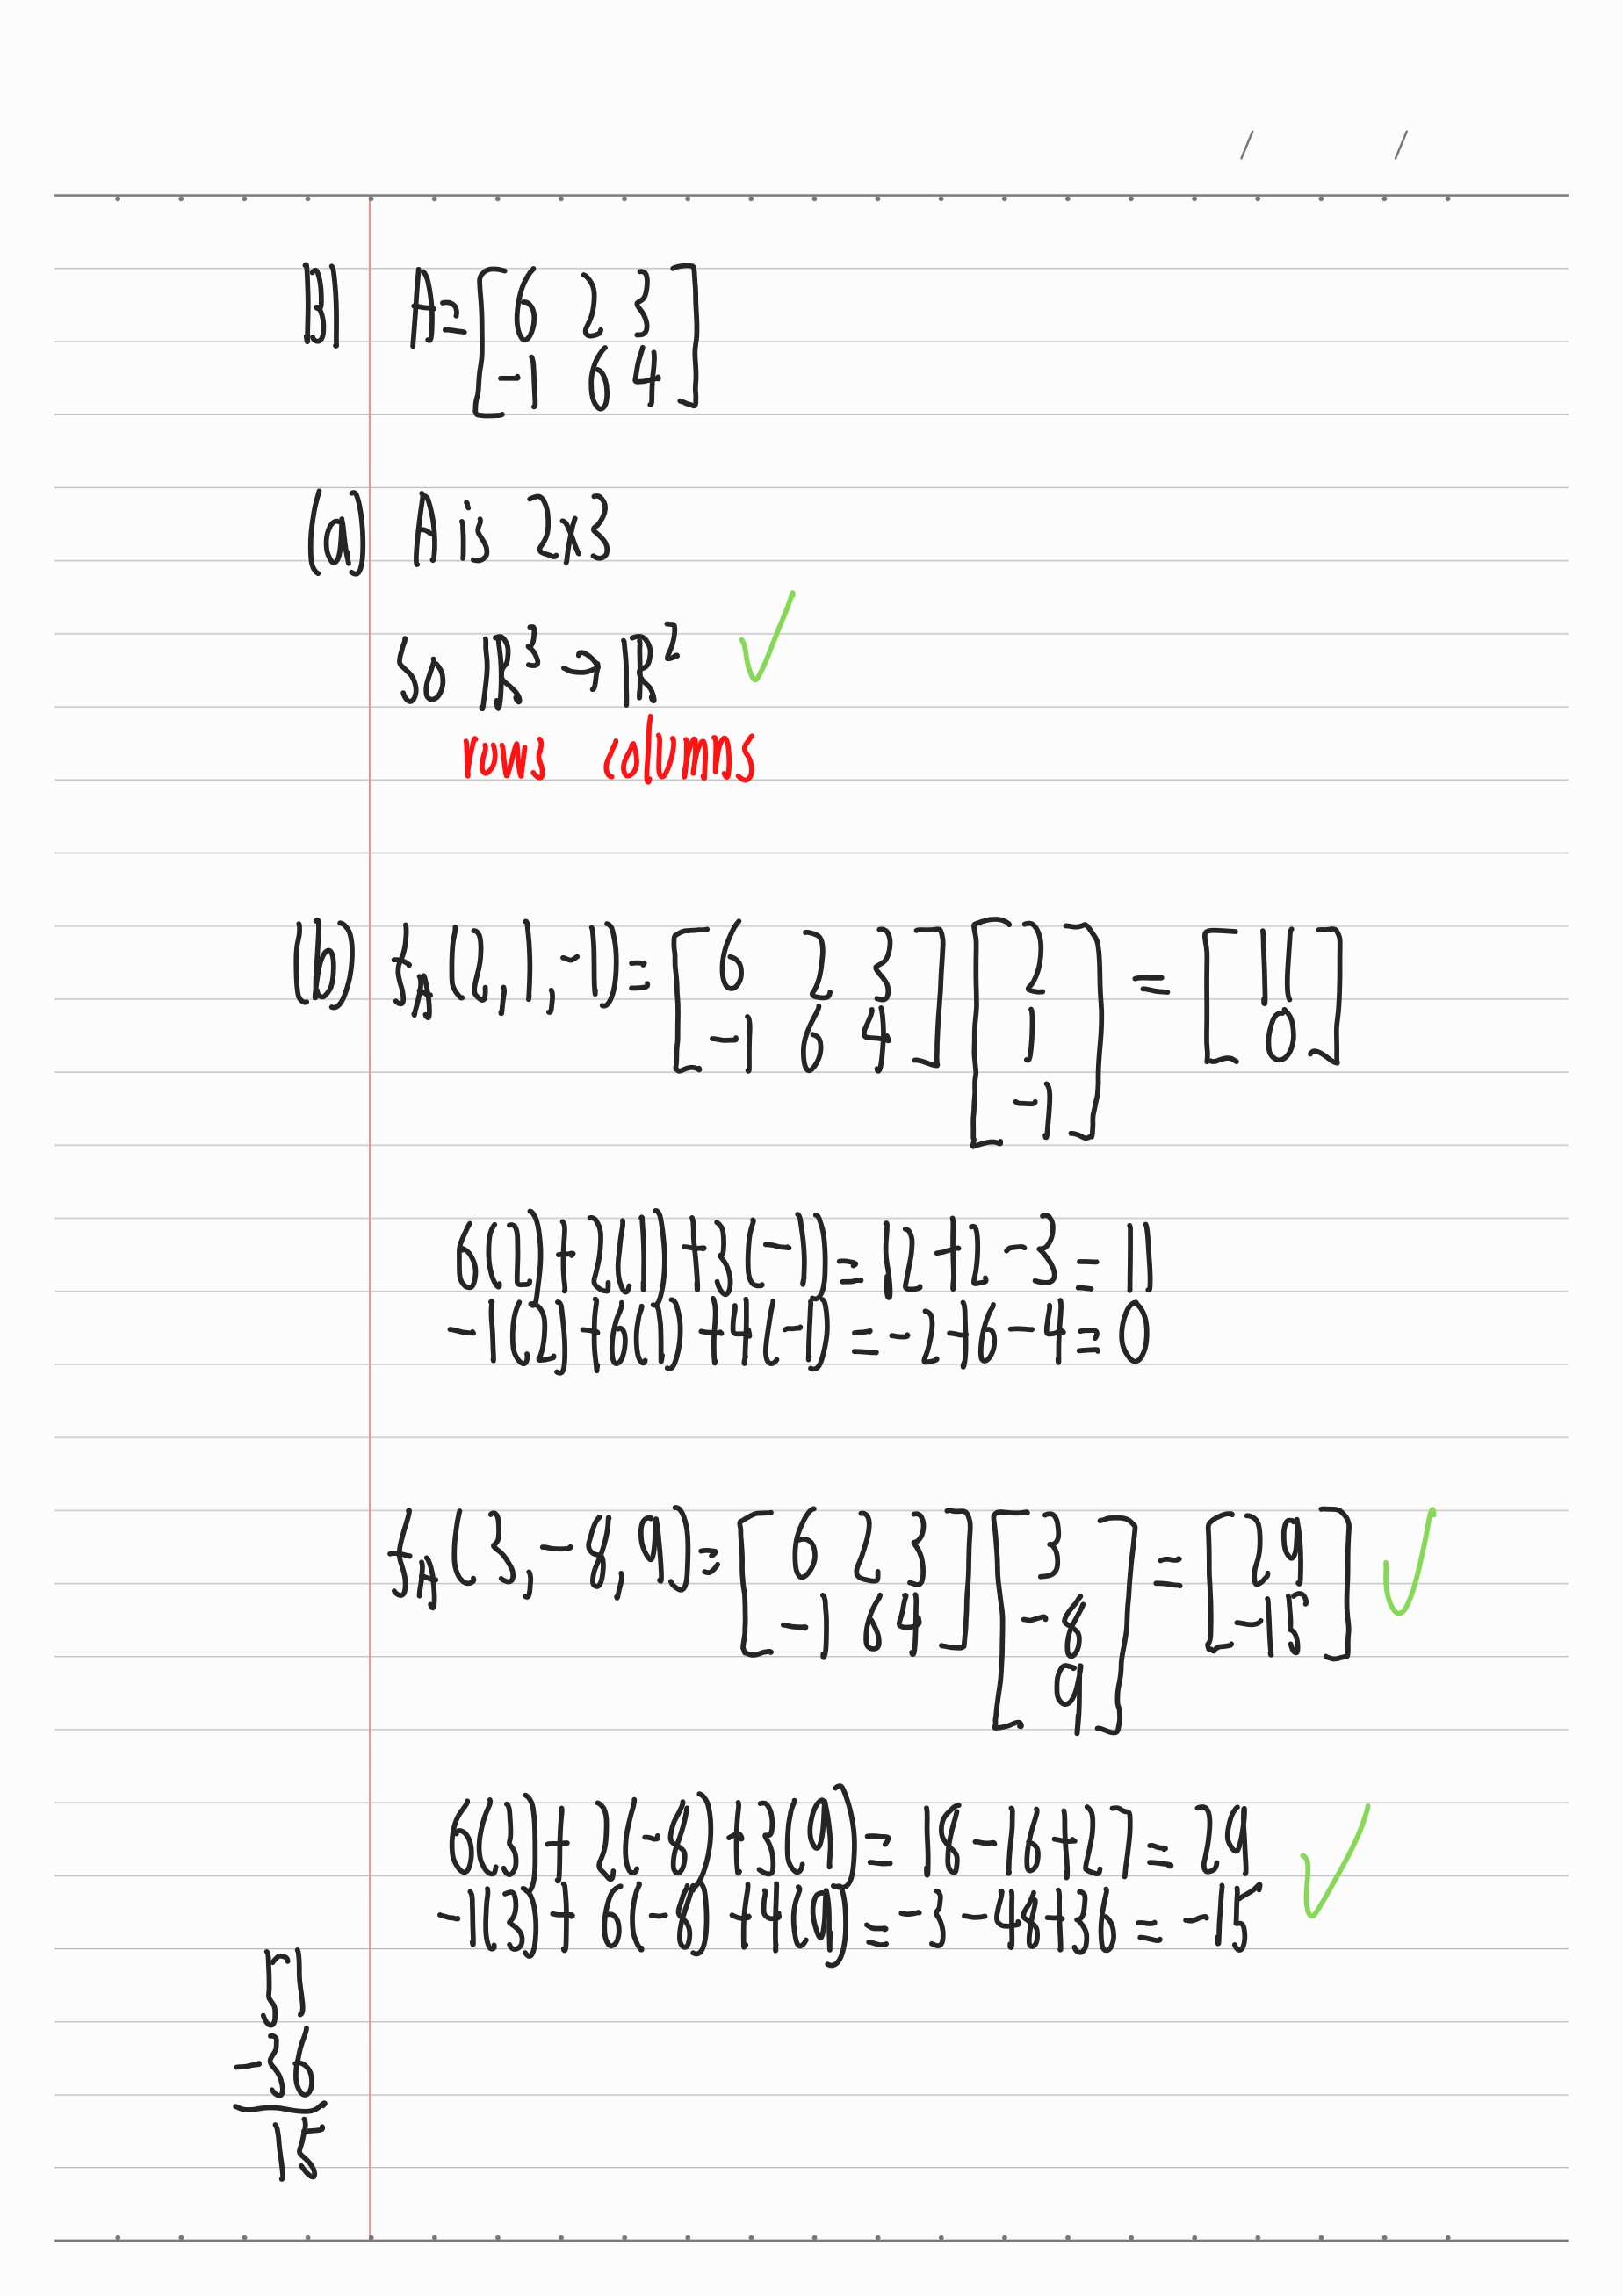 / /
1) A = [6 2 3
-1 6 4]
(a) A is 2x3
So ℝ³ → ℝ² ✓
rows columns
(b) f_A(2,1,-1) = [6 2 3; -1 6 4] [2; 1; -1] = [11; 0]
6(2)+2(1)+3(-1) = 12+2-3 = 11
-1(2)+6(1)+4(-1) = -2+6-4 = 0
f_A(3,-8,9) = [6 2 3; -1 6 4] [3; -8; 9] = [29; -15] ✓
6(3)+2(-8)+3(9) = 18-16+27 = 29 ✓
-1(3)+6(-8)+4(9) = -3-48+36 = -15
51
-36
15